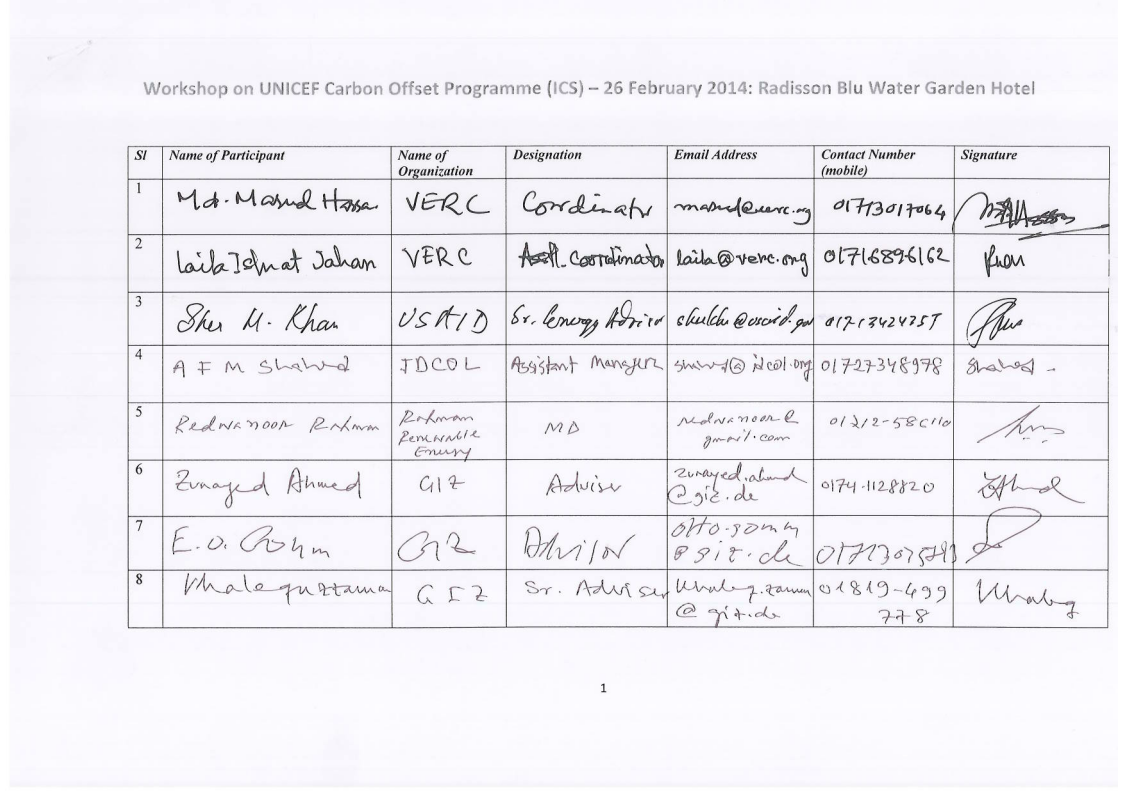 Workshop on UNICEF Carbon Offset Programme (ICS) – 26 February 2014: Radisson Blu Water Garden Hotel
Sl Name of Participant Name of Organization Designation Email Address Contact Number (mobile) Signature
1 Md. Masud Hassa VERC Coordinator masud@verc.org 01713017064
2 Laila Ishrat Jahan VERC Asstt. Coordinator laila@verc.org 01716896162
3 Sher M. Khan USAID Sr. Energy Advisor 01713424257
4 A F M Shahed IDCOL Assistant Manager shahed@idcol.org 01727348978 Shahed -
5 Redwanoor Rahman Rahman Renewable Energy MD gmail.com
6 Zunayed Ahmed GIZ Adviser zunayed.ahmed @giz.de 0174-1128820
7 E.O. Gomm GIZ Advisor otto.gomm @giz.de
8 Khalequzzaman GIZ Sr. Adviser khaleq.zaman @giz.de 01819-499 778 Khaleq
1